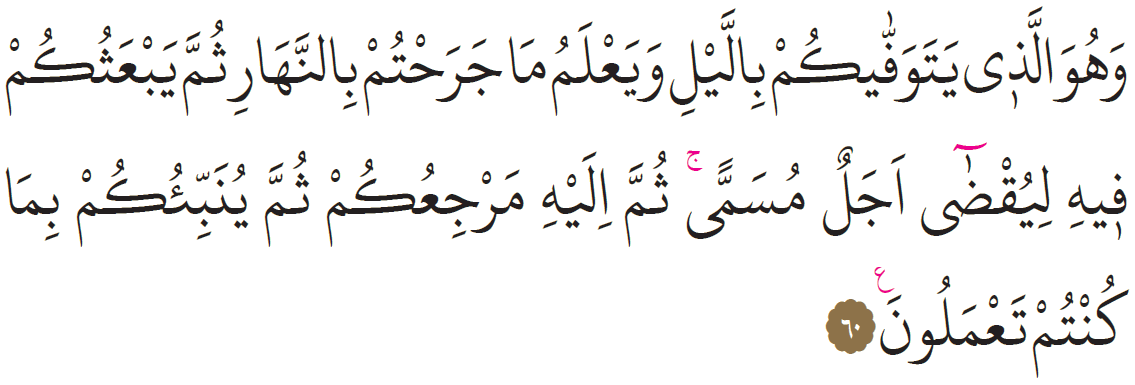 وَهُوَ الَّذ۪ي يَتَوَفّٰيكُمْ بِالَّيْلِ وَيَعْلَمُ مَا جَرَحْتُمْ بِالنَّهَارِ ثُمَّ يَبْعَثُكُمْ
ف۪يهِ لِيُقْضٰٓى اَجَلٌ مُسَمًّىۚ ثُمَّ اِلَيْهِ مَرْجِعُكُمْ ثُمَّ يُنَبِّئُكُمْ بِمَا
كُنْتُمْ تَعْمَلُونَ ع ٦٠